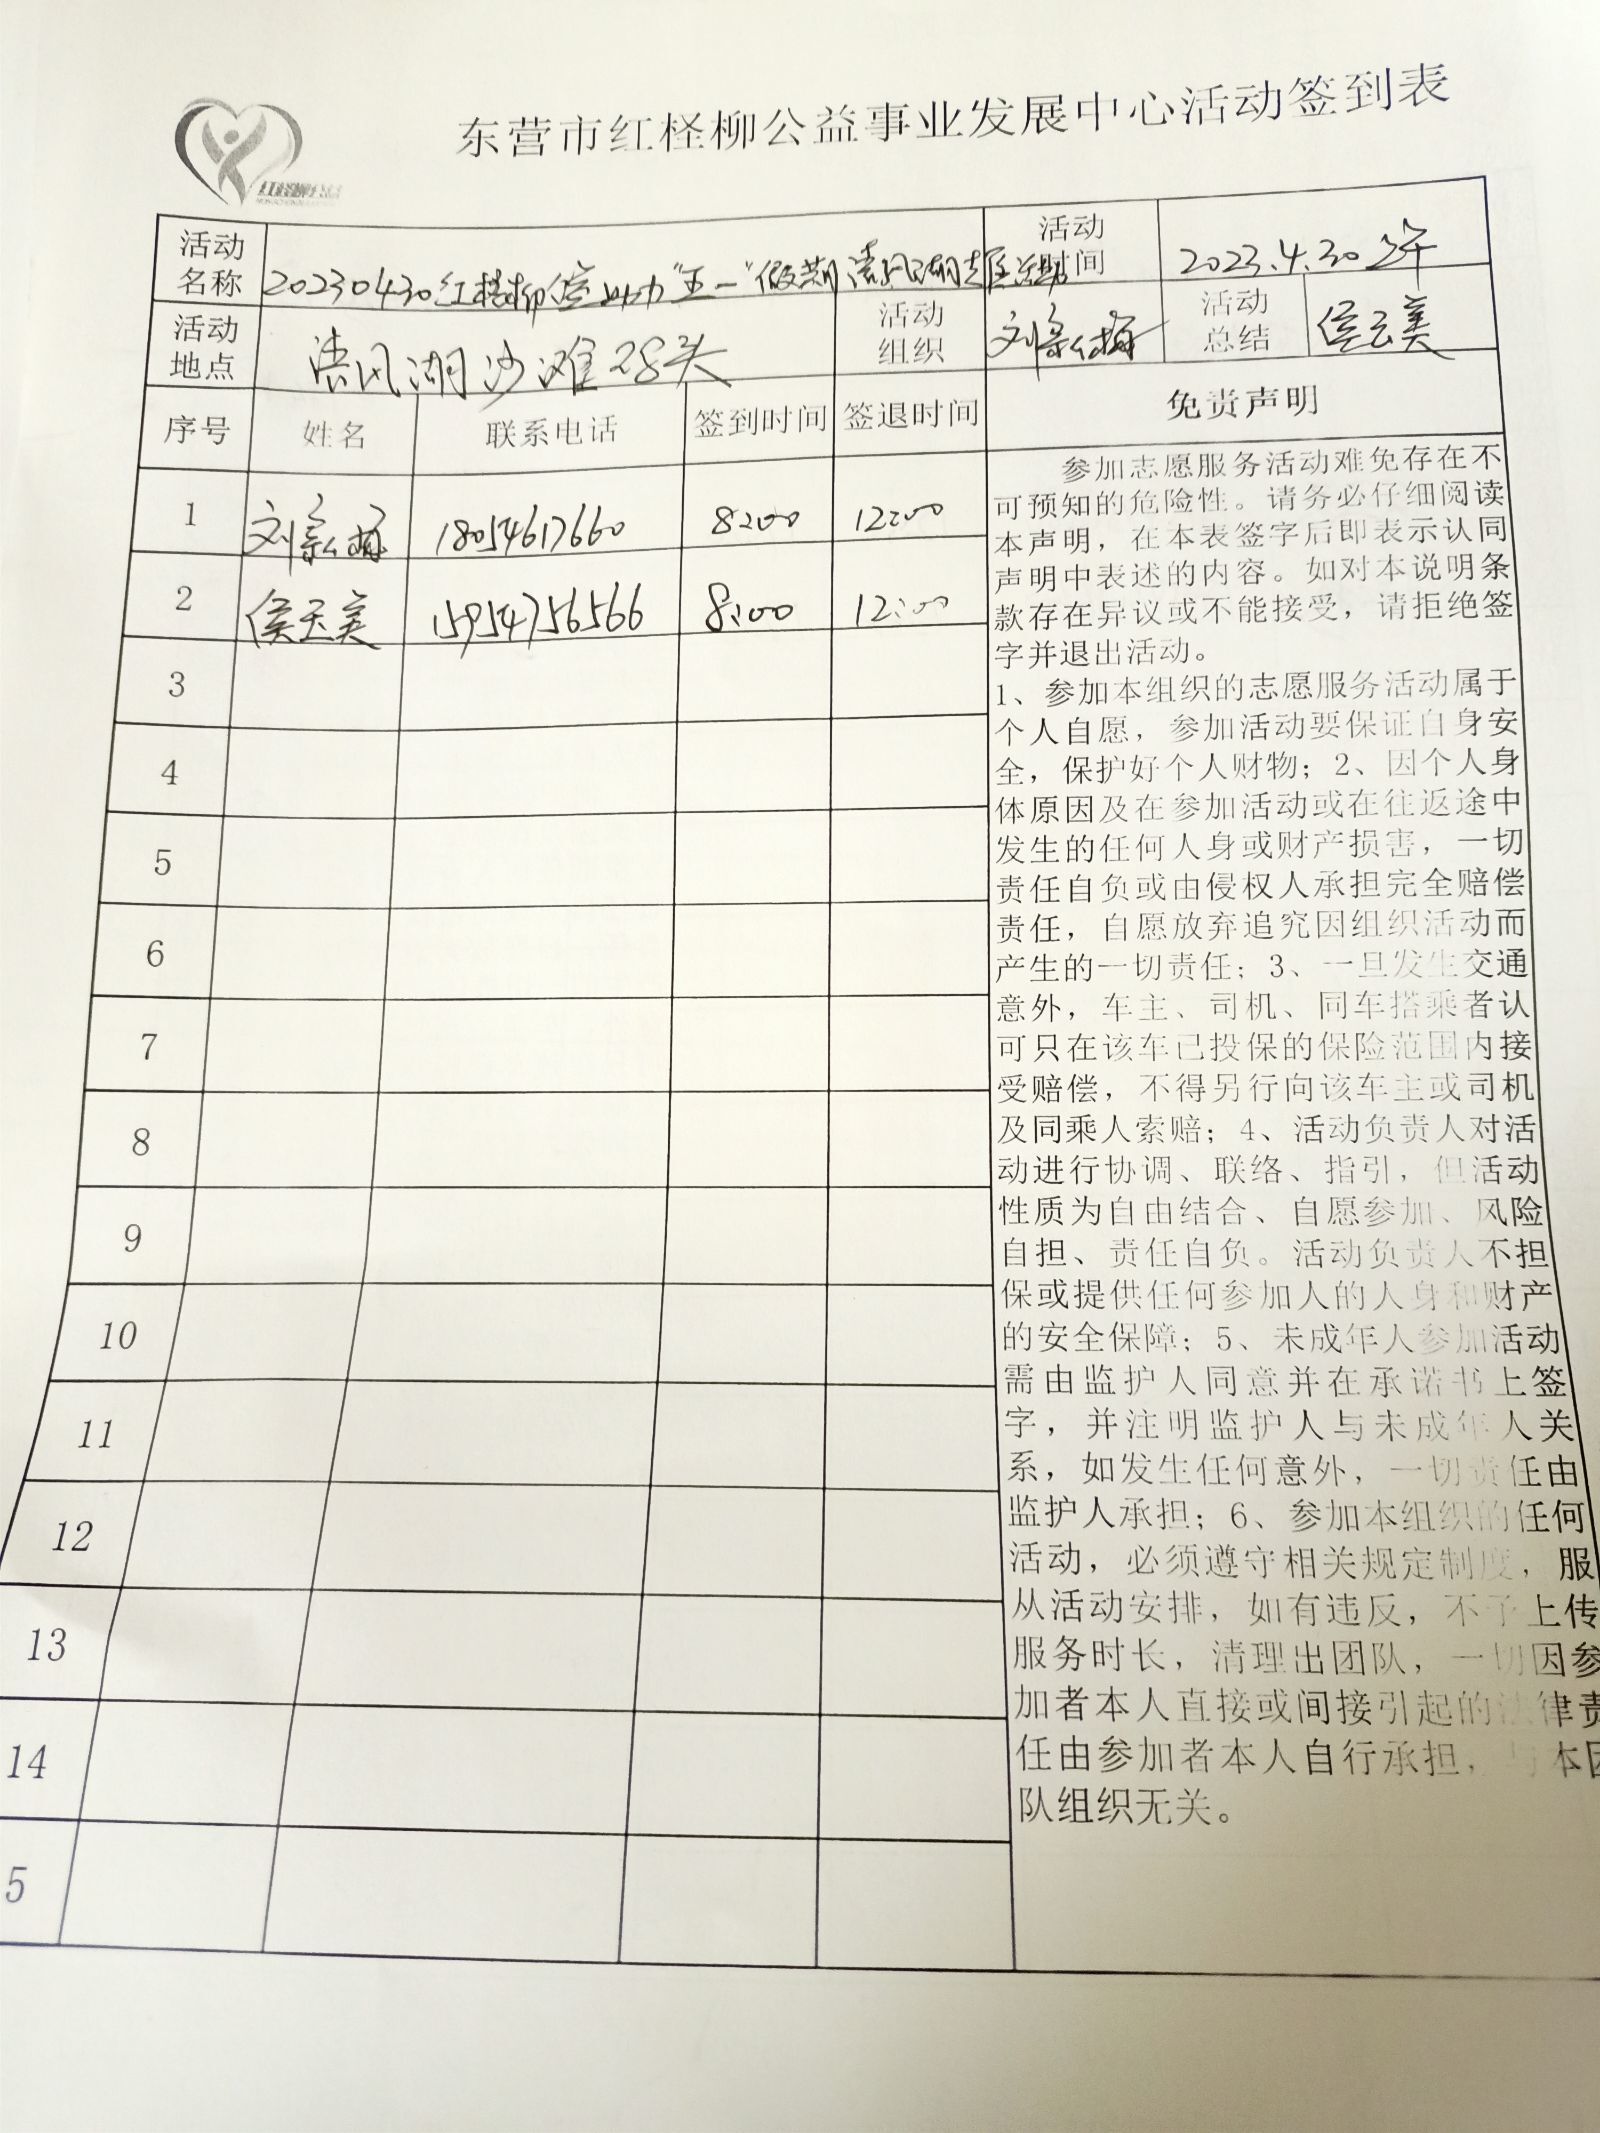 东营市红柽柳公益事业发展中心活动签到表
红柽柳公益
活动名称
20230430红柽柳 助力"五一"假期清风湖 活动
活动时间
2023.4.30 上午
活动地点
清风湖沙滩 码头
活动组织
刘 梅
活动总结
侯云美
序号 姓名 联系电话 签到时间 签退时间 免责声明
1 刘 梅 18054617660 8:00 12:00
2 侯云美 15954756566 8:00 12:00
3
4
5
6
7
8
9
10
11
12
13
14
5
参加志愿服务活动难免存在不
可预知的危险性。请务必仔细阅读
本声明，在本表签字后即表示认同
声明中表述的内容。如对本说明条
款存在异议或不能接受，请拒绝签
字并退出活动。
1、参加本组织的志愿服务活动属于
个人自愿，参加活动要保证自身安
全，保护好个人财物；2、因个人身
体原因及在参加活动或在往返途中
发生的任何人身或财产损害，一切
责任自负或由侵权人承担完全赔偿
责任，自愿放弃追究因组织活动而
产生的一切责任；3、一旦发生交通
意外，车主、司机、同车搭乘者认
可只在该车已投保的保险范围内接
受赔偿，不得另行向该车主或司机
及同乘人索赔；4、活动负责人对活
动进行协调、联络、指引，但活动
性质为自由结合、自愿参加、风险
自担、责任自负。活动负责人不担
保或提供任何参加人的人身和财产
的安全保障；5、未成年人参加活动
需由监护人同意并在承诺书上签
字，并注明监护人与未成年人关
系，如发生任何意外，一切责任由
监护人承担；6、参加本组织的任何
活动，必须遵守相关规定制度，服
从活动安排，如有违反，不予上传
服务时长，清理出团队，一切因参
加者本人直接或间接引起的法律责
任由参加者本人自行承担，与本团
队组织无关。